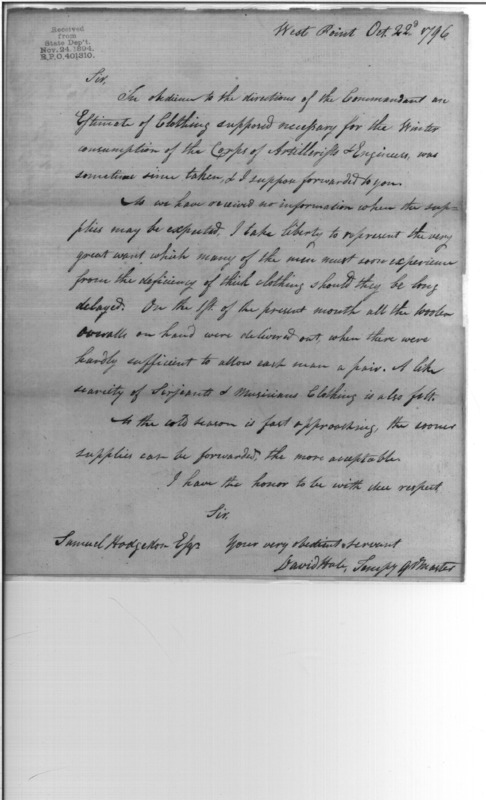 Received
from
State Dep't.
Nov. 24. 1894.
R.P.O. 401310.
West Point Oct. 22d 1796.
Sir,
In obedience to the directions of the Commandant an
Estimate of Clothing supposed necessary for the Winter
consumption of the Corps of Artillerists & Engineers, was
sometime since taken, & I suppose forwarded to you.
As we have received no information when the sup-
plies may be expected, I take liberty to represent the very
great want which many of the men must soon experience
from the deficiency of thick clothing should they be long
delayed. On the 1st of the present month all the woolen
overalls on hand were delivered out, when there were
hardly sufficient to allow each man a pair. A like
scarcity of Serjeants & Musicians Clothing is also felt.
As the cold season is fast approaching, the sooner
supplies can be forwarded, the more acceptable.
I have the honor to be with due respect
Sir,
Samuel Hodgdon Esqr Your very obedient servant
David Hale, Qr Master